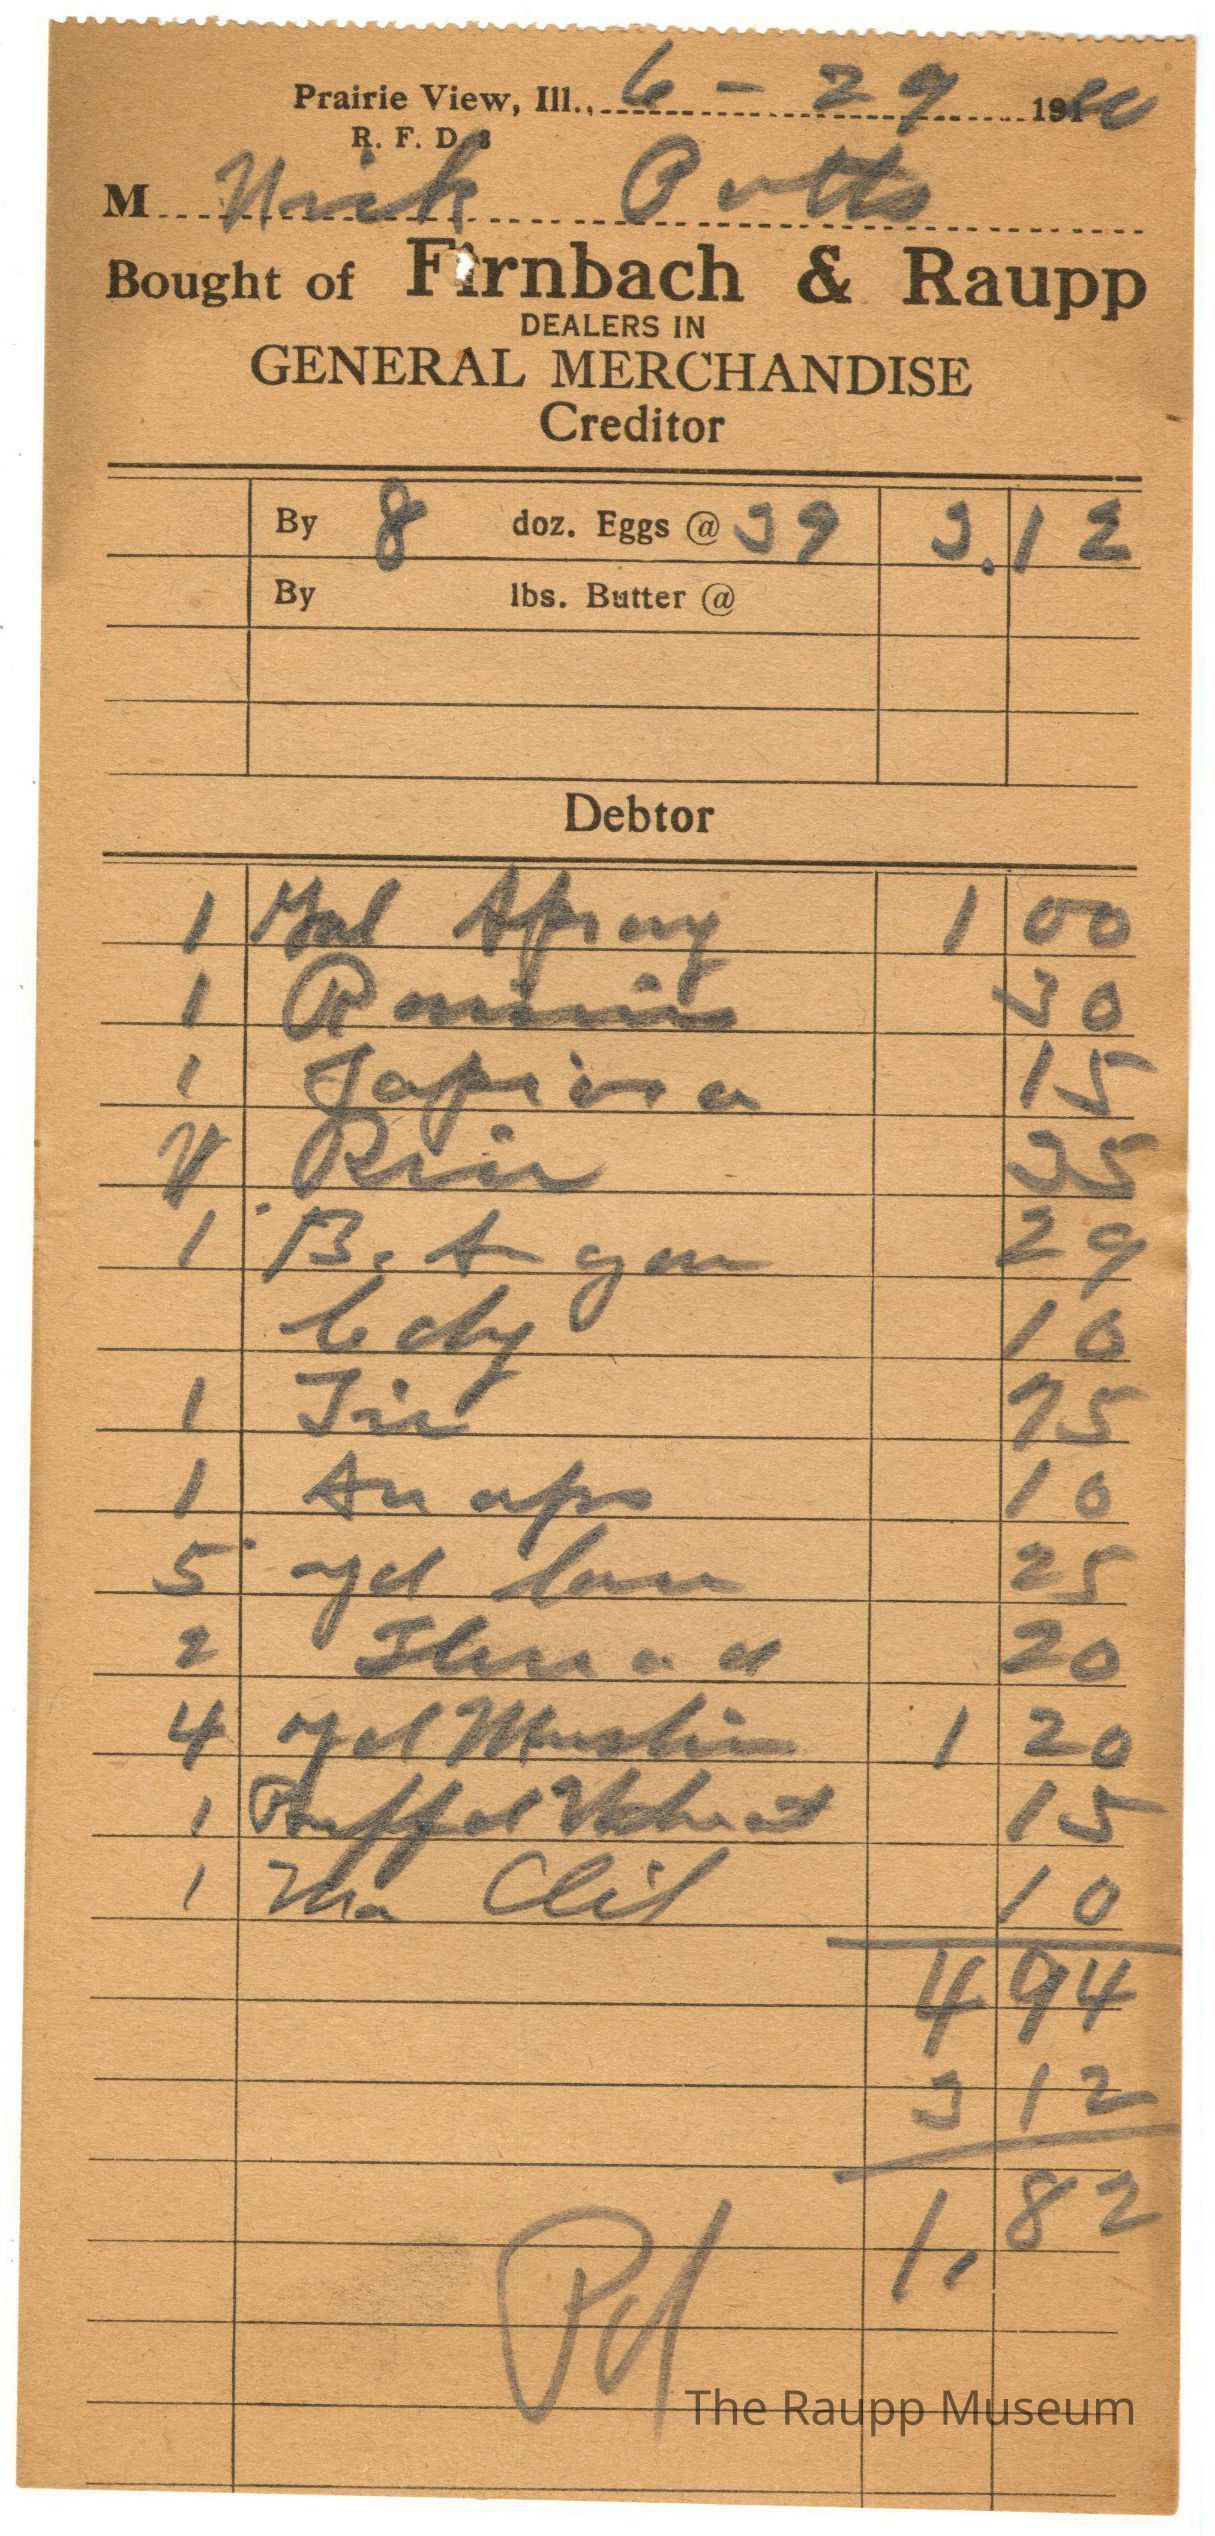 Prairie View, Ill., 6 - 29 1920
R. F. D. 3
M Nick Potts
Bought of Firnbach & Raupp
DEALERS IN
GENERAL MERCHANDISE
Creditor
By 8 doz. Eggs @ 39 3.12
By lbs. Butter @
Debtor
1 Gal Spray 1 00
1 Raisins 30
1 Tapioca 15
Rice 35
1 B. 29
Cdy 10
1 75
1 Snaps 10
5 yd 25
2 Thread 20
4 yd Muslin 1 20
1 Puffed Wheat 15
1 10
4 94
3 12
1.82
Pd
The Raupp Museum